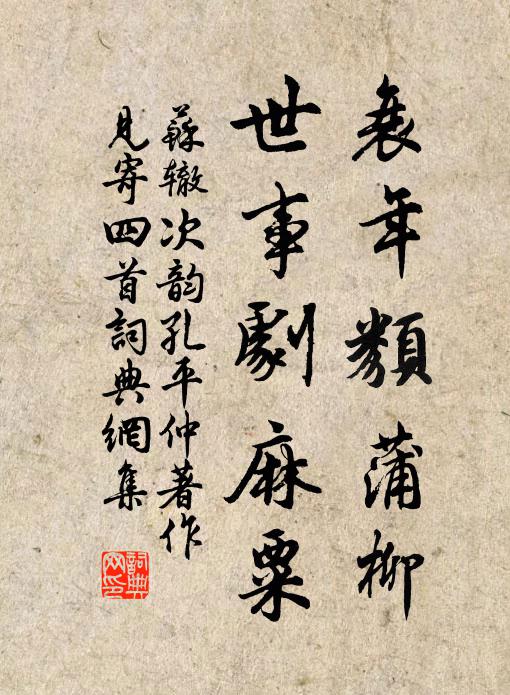 衰年類蒲柳
世事劇麻粟
蘇辙次韵孔平仲著作
見寄四首詞典網集
詞典网印